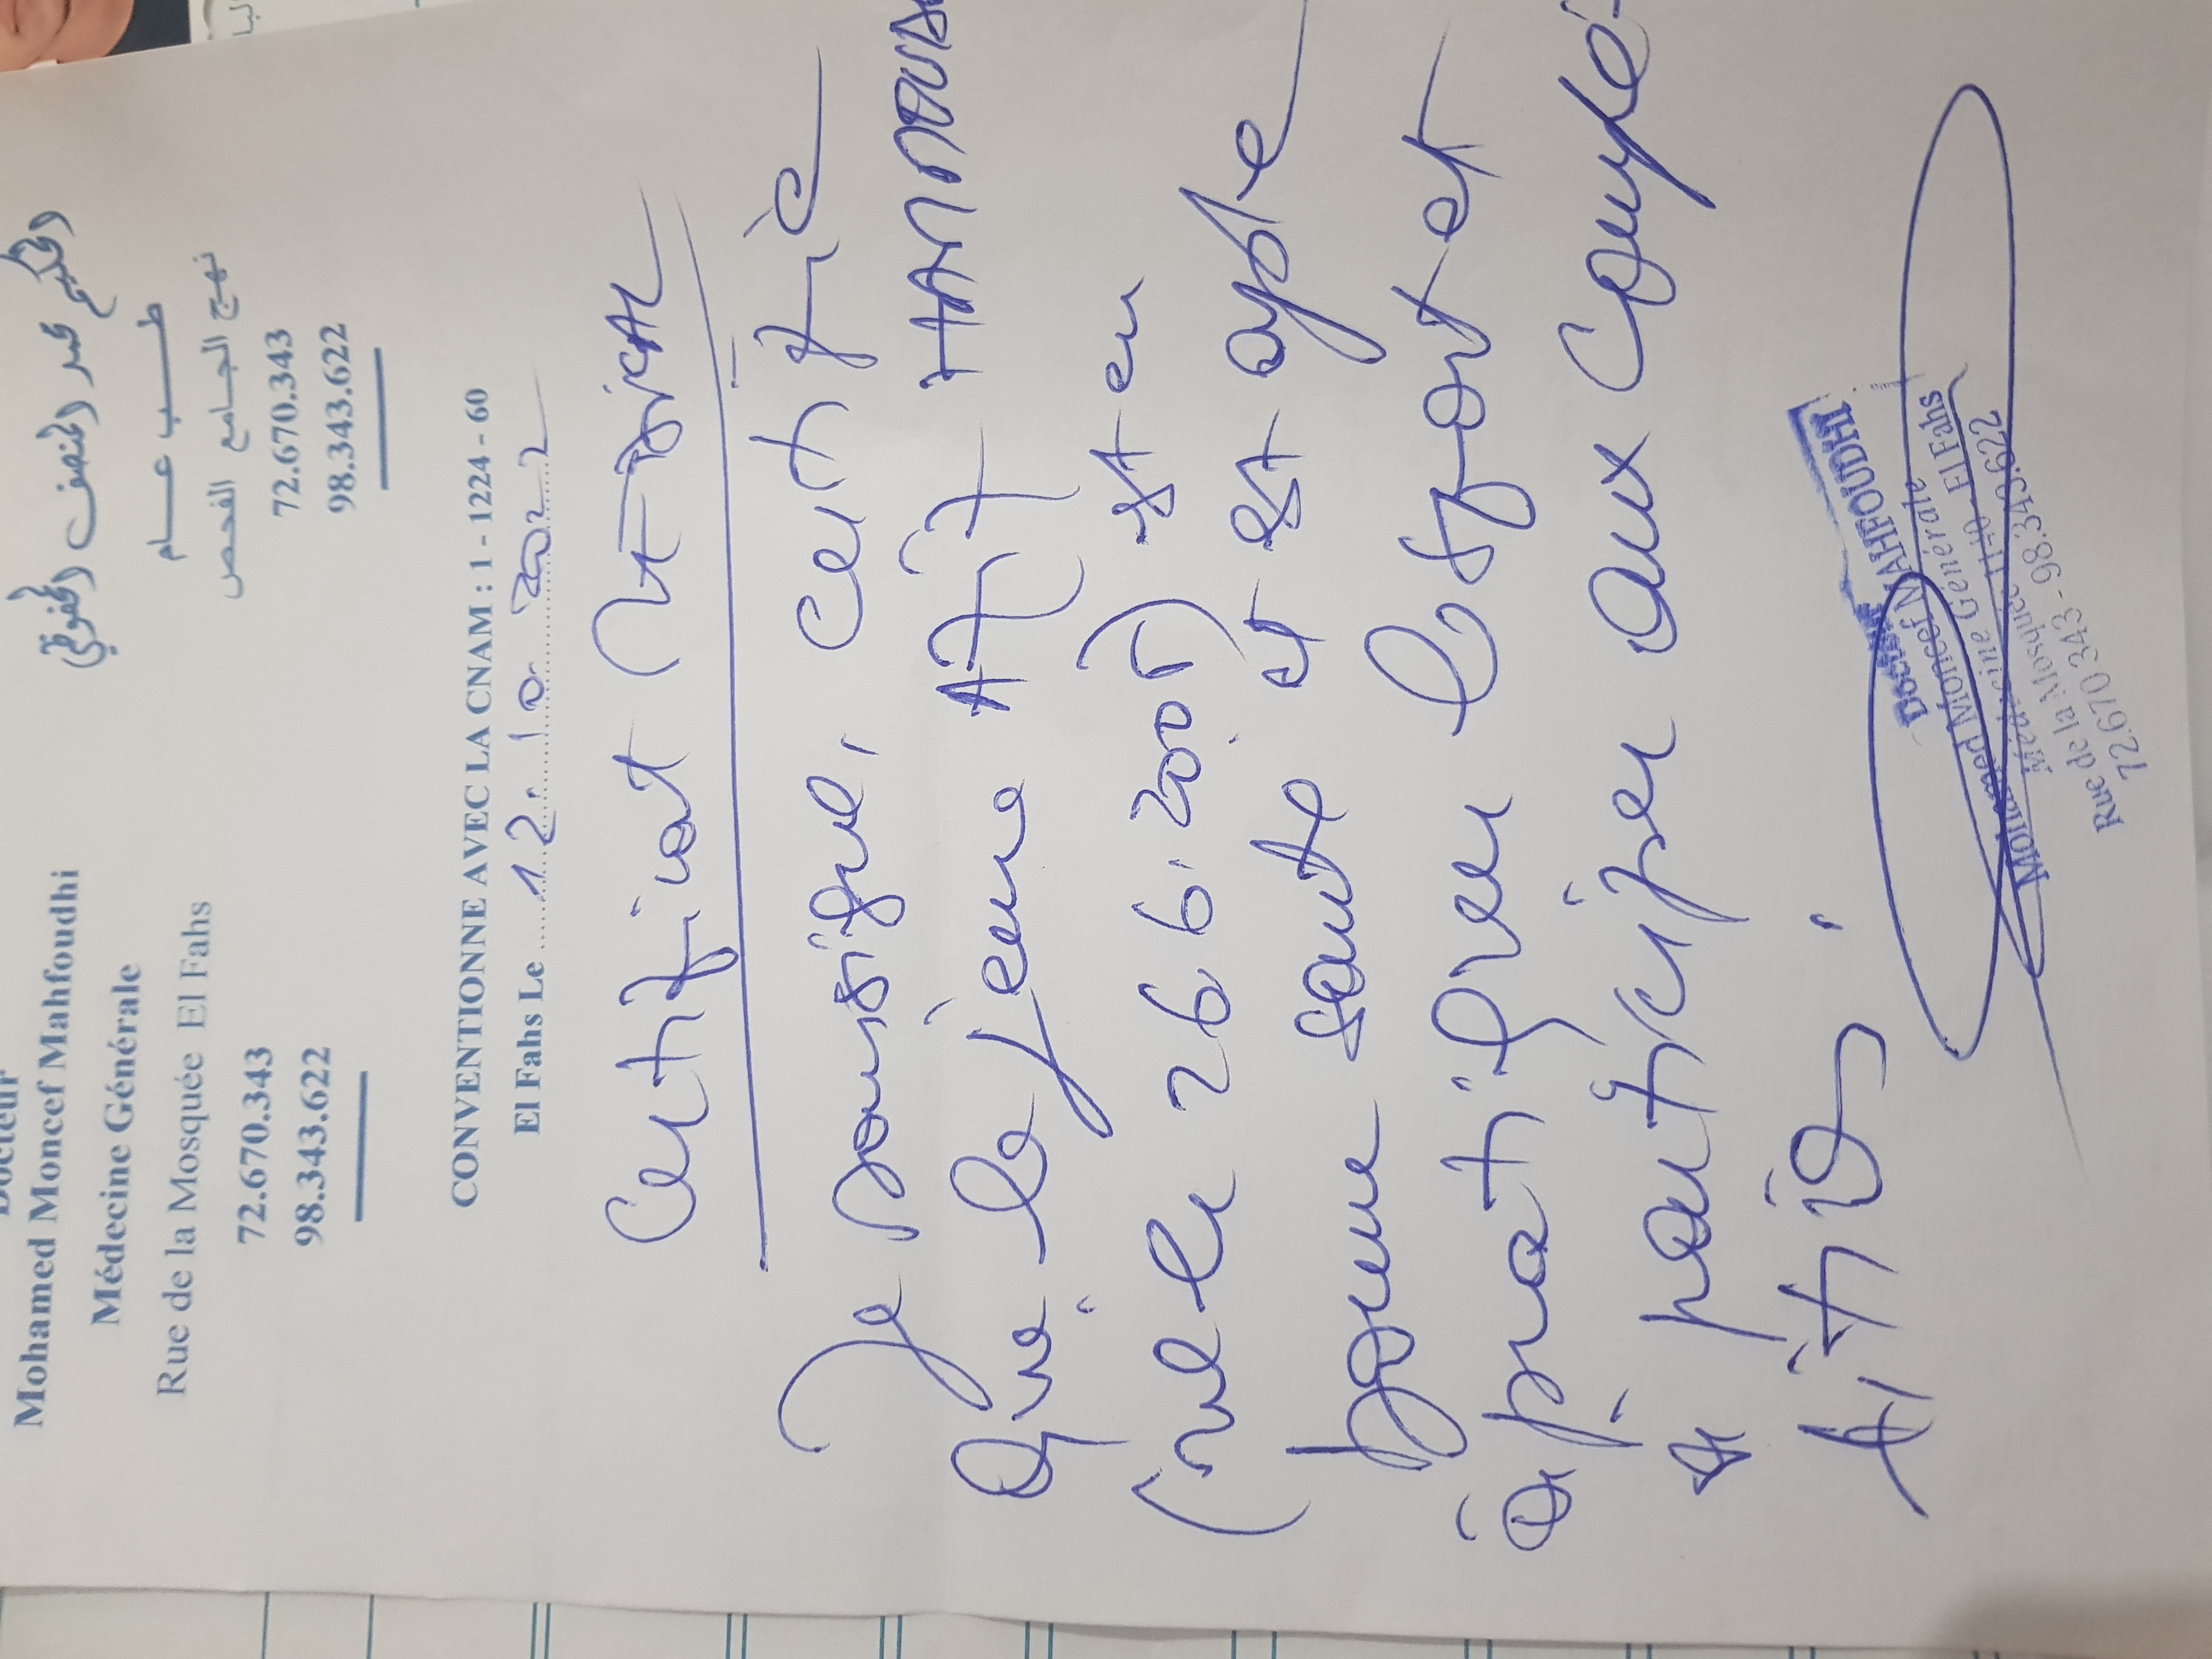 Docteur
Mohamed Moncef Mahfoudhi
Médecine Générale
Rue de la Mosquée El Fahs
72.670.343
98.343.622
الحكيم محمد المنصف المحفوظي
طـــب عـــام
نهج الجامع الفحص
72.670.343
98.343.622
CONVENTIONNE AVEC LA CNAM : 1 - 1224 - 60
El Fahs Le 12.10.2022
Certificat MEDICAL
Je soussigné, certifie
que le jeune
(né le 26.6.2005) est en
bonne santé et est apte
à pratiquer le sport et
à participer aux compé-
titions.
Docteur
Mohamed Moncef MAHFOUDHI
Médecine Générale
Rue de la Mosquée 1140 El Fahs
72.670.343 - 98.343.622